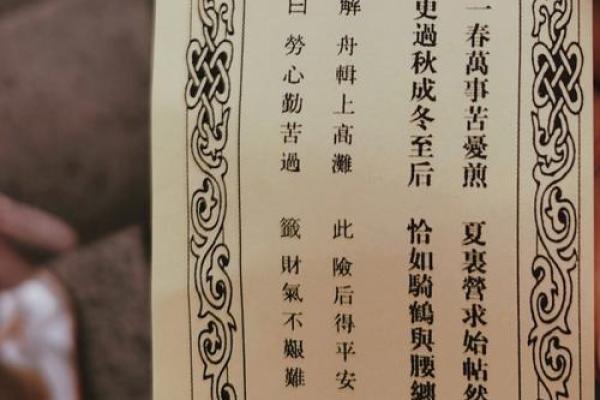 一春萬事苦憂煎 夏裏營求始帖然
更過秋成冬至后 恰如騎鶴與腰纏
解 舟輯上高灘 此險后得平安
曰 勞心勤苦過 籤財氣不艱難